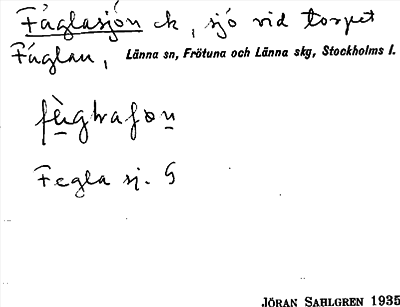 Fåglasjön ek, sjö vid torpet
Fåglan, Länna sn, Frötuna och Länna skg, Stockholms l.
Fegla sj. G
JÖRAN SAHLGREN 1935